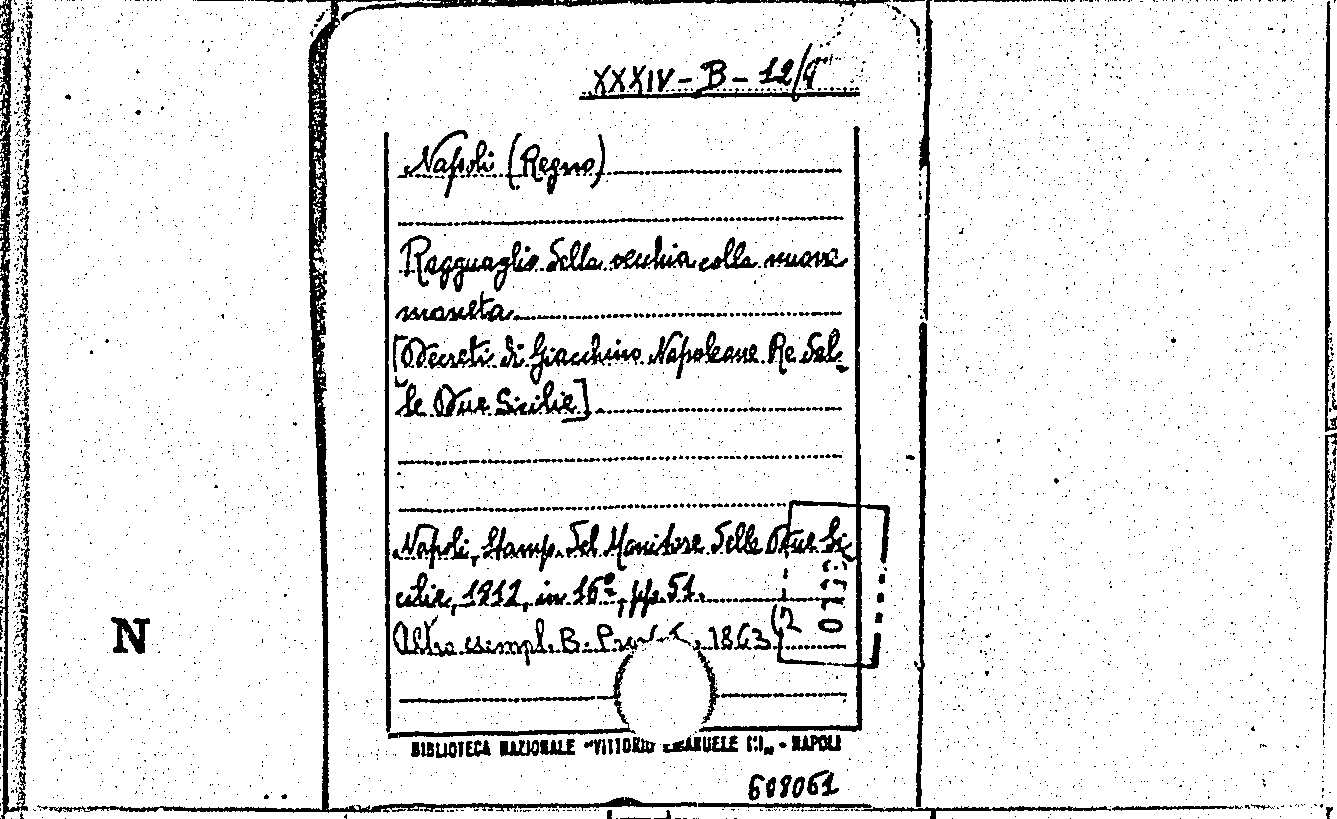 XXXIV-B-12/
Napoli (Regno)
Ragguaglio della vecchia colla nuova
moneta
[Decreti di Giacchino Napoleone Re del-
le Due Sicilie]
Napoli, Stamp. del Monitore delle Due Si-
cilie, 1812, in 16º, pp. 51.
Altro esempl. B. 1863
N
BIBLIOTECA NAZIONALE "VITTORIO EMANUELE III" - NAPOLI
608061